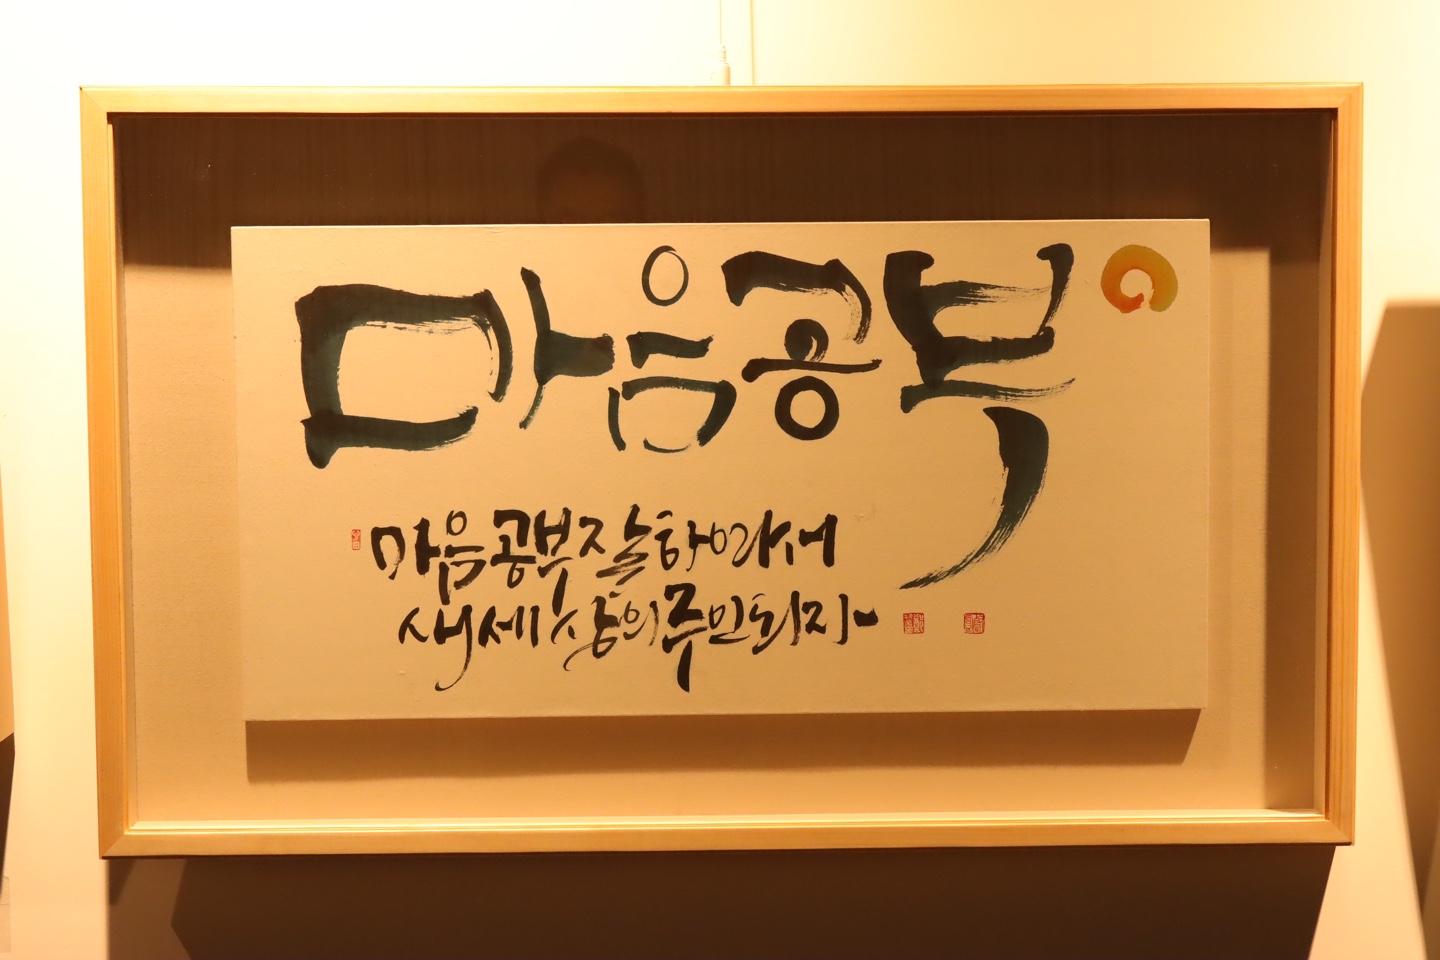 마음공부
마음공부 잘하여서
새 세상의 주인 되자